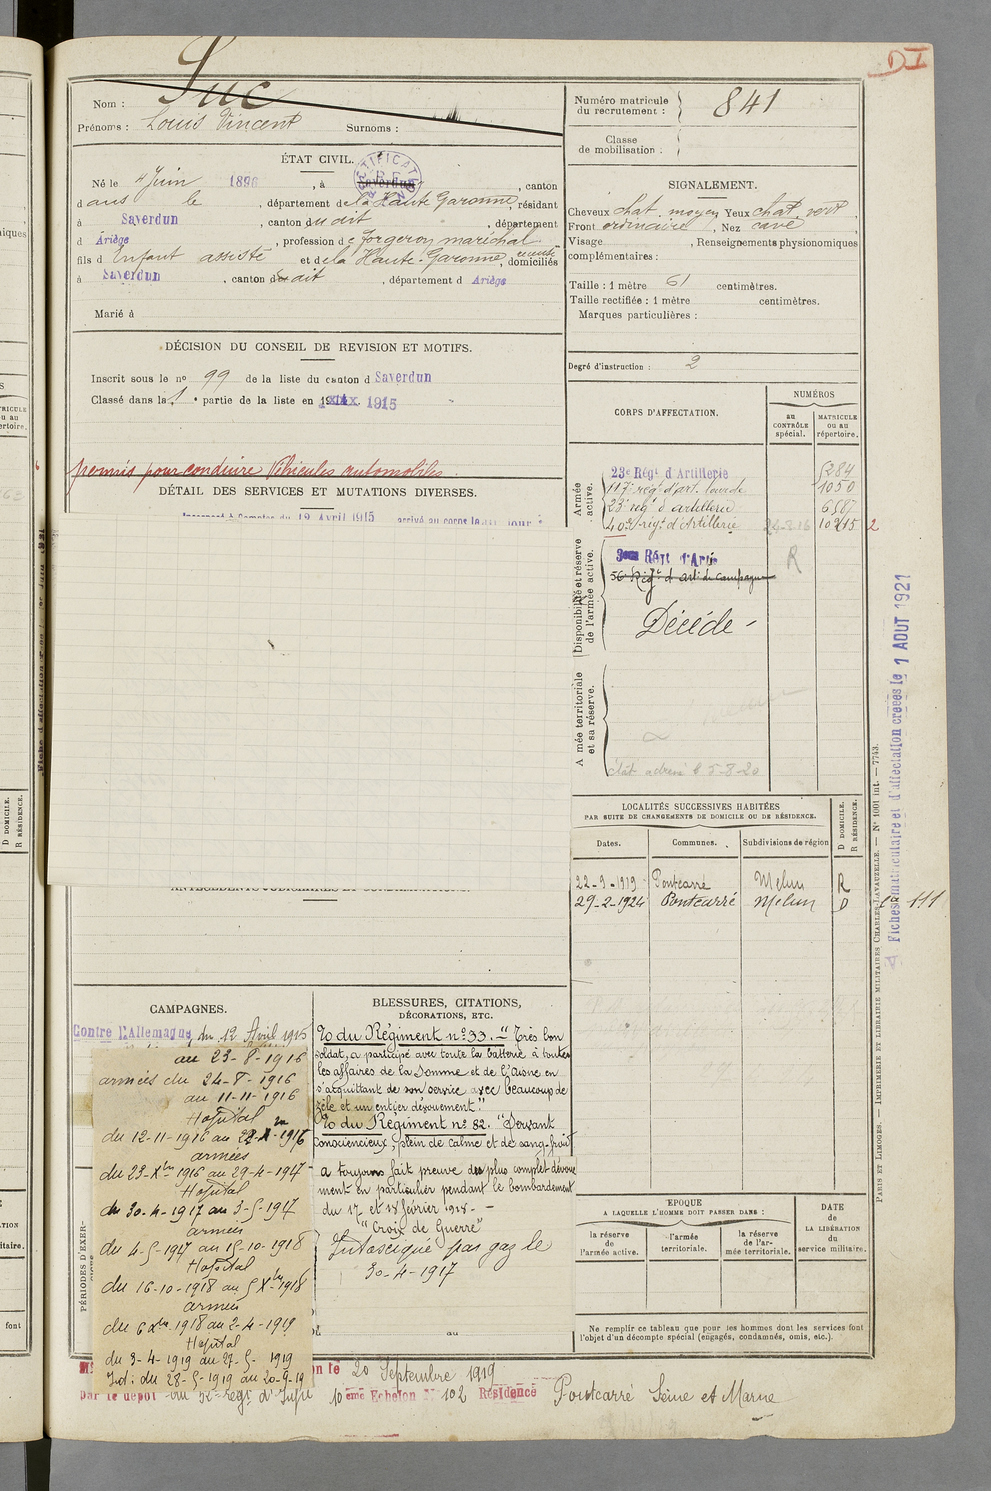 D I
Nom : Suc
Prénoms : Louis Vincent Surnoms :
Numéro matricule du recrutement : 841
Classe de mobilisation :
ÉTAT CIVIL.
Né le 4 Juin 1896, à Saverdun, canton
d ans le, département de la Haute Garonne, résidant
à Saverdun, canton du dit, département
d Ariège, profession de forgeron maréchal
fils d Enfant assisté et de la Haute-Garonne, domiciliés
à Saverdun, canton du dit, département d Ariège
Marié à
SIGNALEMENT.
Cheveux chat. moyen Yeux chat. vert,
Front ordinaire, Nez cave
Visage, Renseignements physionomiques
complémentaires :
Taille : 1 mètre 61 centimètres.
Taille rectifiée : 1 mètre centimètres.
Marques particulières :
Degré d'instruction : 2
DÉCISION DU CONSEIL DE REVISION ET MOTIFS.
Inscrit sous le no 99 de la liste du canton d Saverdun
Classé dans la 1e partie de la liste en 1915
permis pour conduire Véhicules automobiles
DÉTAIL DES SERVICES ET MUTATIONS DIVERSES.
du 12 Avril 1915 arrivé au corps le dit jour
CORPS D'AFFECTATION.
NUMÉROS
au CONTRÔLE spécial.
MATRICULE ou au répertoire.
Armée active.
23e Régt d'Artillerie 5284
117e rég. d'art. lourde 1050
23e régt d'artillerie 6587
40e rég. d'Artillerie 24-8-16 10215 2
Disponibilité et réserve de l'armée active.
3eme Régt d'Artie R
56e Régt d'arti de Campagne
Décédé -
Armée territoriale et sa réserve.
état adressé le 5-8-20
LOCALITÉS SUCCESSIVES HABITÉES
PAR SUITE DE CHANGEMENTS DE DOMICILE OU DE RÉSIDENCE.
Dates. Communes. Subdivisions de région D DOMICILE. R RÉSIDENCE.
22-9-1919 Pontcarré Melun R
29-2-1924 Pontcarré Melun D
111
Fiches matriculaire et d'affectation créées le 1 AOUT 1921
PARIS ET LIMOGES. — IMPRIMERIE ET LIBRAIRIE MILITAIRES CHARLES-LAVAUZELLE. — No 1001 int. — 7743.
ANTÉCÉDENTS JUDICIAIRES ET CONDAMNATIONS.
CAMPAGNES.
Contre L'Allemagne du 12 Avril 1915
au 23-8-1916
armées du 24-8-1916
au 11-11-1916
Hopital
du 12-11-1916 au 22-Xbre-1916
armées
du 23-Xbre 1916 au 29-4-1917
Hopital
du 30-4-1917 au 3-5-1917
armées
du 4-5-1917 au 15-10-1918
Hopital
du 16-10-1918 au 5 Xbre 1918
armées
du 6 Xbre 1918 au 2-4-1919
Hopital
du 3-4-1919 au 27-5-1919
Id : du 28-5-1919 au 20-9-19
BLESSURES, CITATIONS,
DÉCORATIONS, ETC.
O du Régiment no 33. - "Très bon
soldat, a participé avec toute la batterie à toutes
les affaires de la Somme et de l'Aisne en
s'acquittant de son service avec beaucoup de
zèle et un entier dévouement."
O du Régiment no 82. "Servant
consciencieux, plein de calme et de sang-froid
a toujours fait preuve du plus complet dévoue
ment en particulier pendant le bombardement
du 17 et 18 février 1918. -
"Croix de Guerre"
Intoxiqué par gaz le
30-4-1917
au
PÉRIODES D'EXER-
ÉPOQUE
A LAQUELLE L'HOMME DOIT PASSER DANS :
la réserve de l'armée active.
l'armée territoriale.
la réserve de l'armée territoriale.
DATE de LA LIBÉRATION du service militaire.
Ne remplir ce tableau que pour les hommes dont les services font
l'objet d'un décompte spécial (engagés, condamnés, omis, etc.).
le 20 Septembre 1919
par le dépôt du 52e régt d'Infie 10eme Echelon No 102 Résidence Pontcarré Seine et Marne